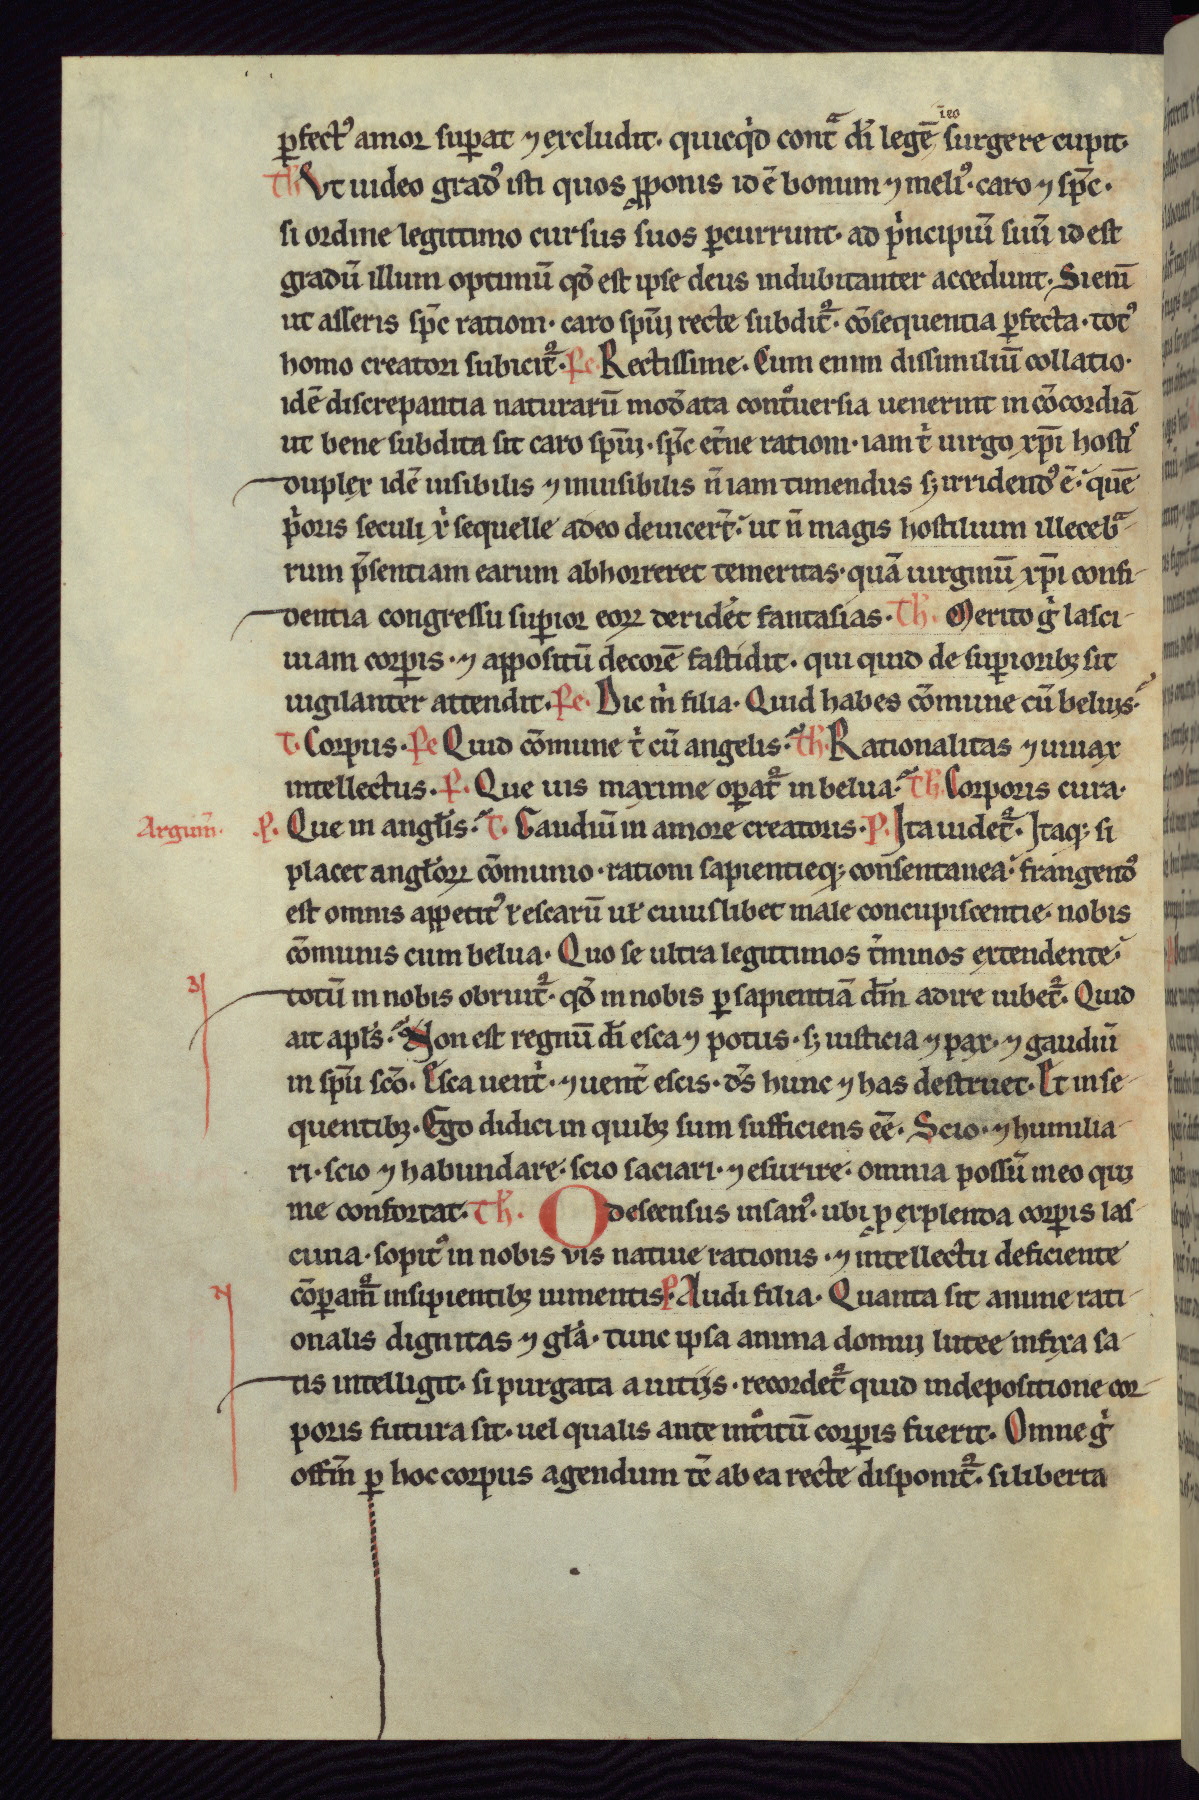 ieo
ꝑfectꝰ amor suꝑat ⁊ excludit· quicq̇d contᵃ dī legē surgere cupit·
Th̓ Vt uideo gradꝰ isti quos ꝓponis id ē bonum ⁊ meliꝰ· caro ⁊ sp̄c·
si ordine legittimo cursus suos ꝑcurrunt· ad pͥncipiū suū id est
gradū illum optimū qd̄ est ipse deus indubitanter accedunt· Si eni̅
ut asseris sp̄c rationi· caro sp̄ui recte subdit᷑· cōsequentia ꝑfecta· totꝰ
homo creatori subicit᷑· Pe· Rectissime· Cum enim dissimiliū collatio·
idē discrepantia naturarū mod̓ata contͦuersia uenerint in cōcordiā
ut bene subdita sit caro sp̄ui· sp̄c et̓ne rationi· iam tͥ uirgo xp̄i hostiꝰ
duplex idē uisibilis ⁊ inuisibilis n̄ iam timendus sꝫ irridendꝰ ē· quē
pͥoris seculi xͥ sequelle adeo deuicer̄t· ut n̄ magis hostilium illecebᵃ
rum p̄sentiam earum abhorreret temeritas· quā uirginū xp̄i confi
dentia congressu suꝑior eoꝝ derid̓et fantasias· Th̓· Merito gͥ lasci
uiam corꝑis· ⁊ appositū decorē fastidit· qui quid de suꝑioribꝫ sit
uigilanter attendit· Pe· Dic mͥ filia· Quid habes cōmune cū beluis·
T· Corpus· Pe Quid cōmune tͥ cū angelis· Th̓· Rationalitas ⁊ uiuax
intellectus· P· Que uis maxime oꝑat᷑ in belua· Th̓· Corporis cura·
Argum̄· P· Que in angl̓is· T· Gaudiū in amore creatoris· P· Ita uidet᷑· Itaqꝫ si
placet angl̓oꝝ cōmunio· rationi sapientieqꝫ consentanea· frangendꝰ
est omnis appetitꝰ ł escarū ul̓ cuiuslibet male concupiscentie· nobis
cōmunis cum belua· Quo se ultra legittimos t̓minos extendente·
totū in nobis obruit᷑· qd̄ in nobis ꝑ sapientiā dm̄ adire iubet᷑· Quid
ait apl̓s· Non est regnū dī esca ⁊ potus· sꝫ iusticia ⁊ pax· ⁊ gaudiū
in sp̄u scō· Esca uentͥ· ⁊ uent̓ escis· ds̄ hunc ⁊ has destruet· Et in se
quentibꝫ· Ego didici in quibꝫ sum sufficiens eē· Scio· ⁊ humilia
ri· scio ⁊ habundare· scio saciari· ⁊ esurire· omnia possū in eo qui
me confortat· Th̓· O descensus insanꝰ· ubi ꝓ explenda corꝑis las
ciuia· sopitꝰ in nobis vis natiue rationis· ⁊ intellectu deficiente
cōparam᷑ insipientibꝫ iumentis· P· Audi filia· Quanta sit anime rati
onalis dignitas ⁊ gl̓a· tunc ipsa anima domui lutee infixa sa
tis intelligit· si purgata a uitijs· recordet᷑ quid in depositione cor
poris futura sit· uel qualis ante intͦitū corꝑis fuerit· Omne gͥ
offm̄ ꝑ hoc corpus agendum tc̄ ab ea recte disponit᷑· si liberta